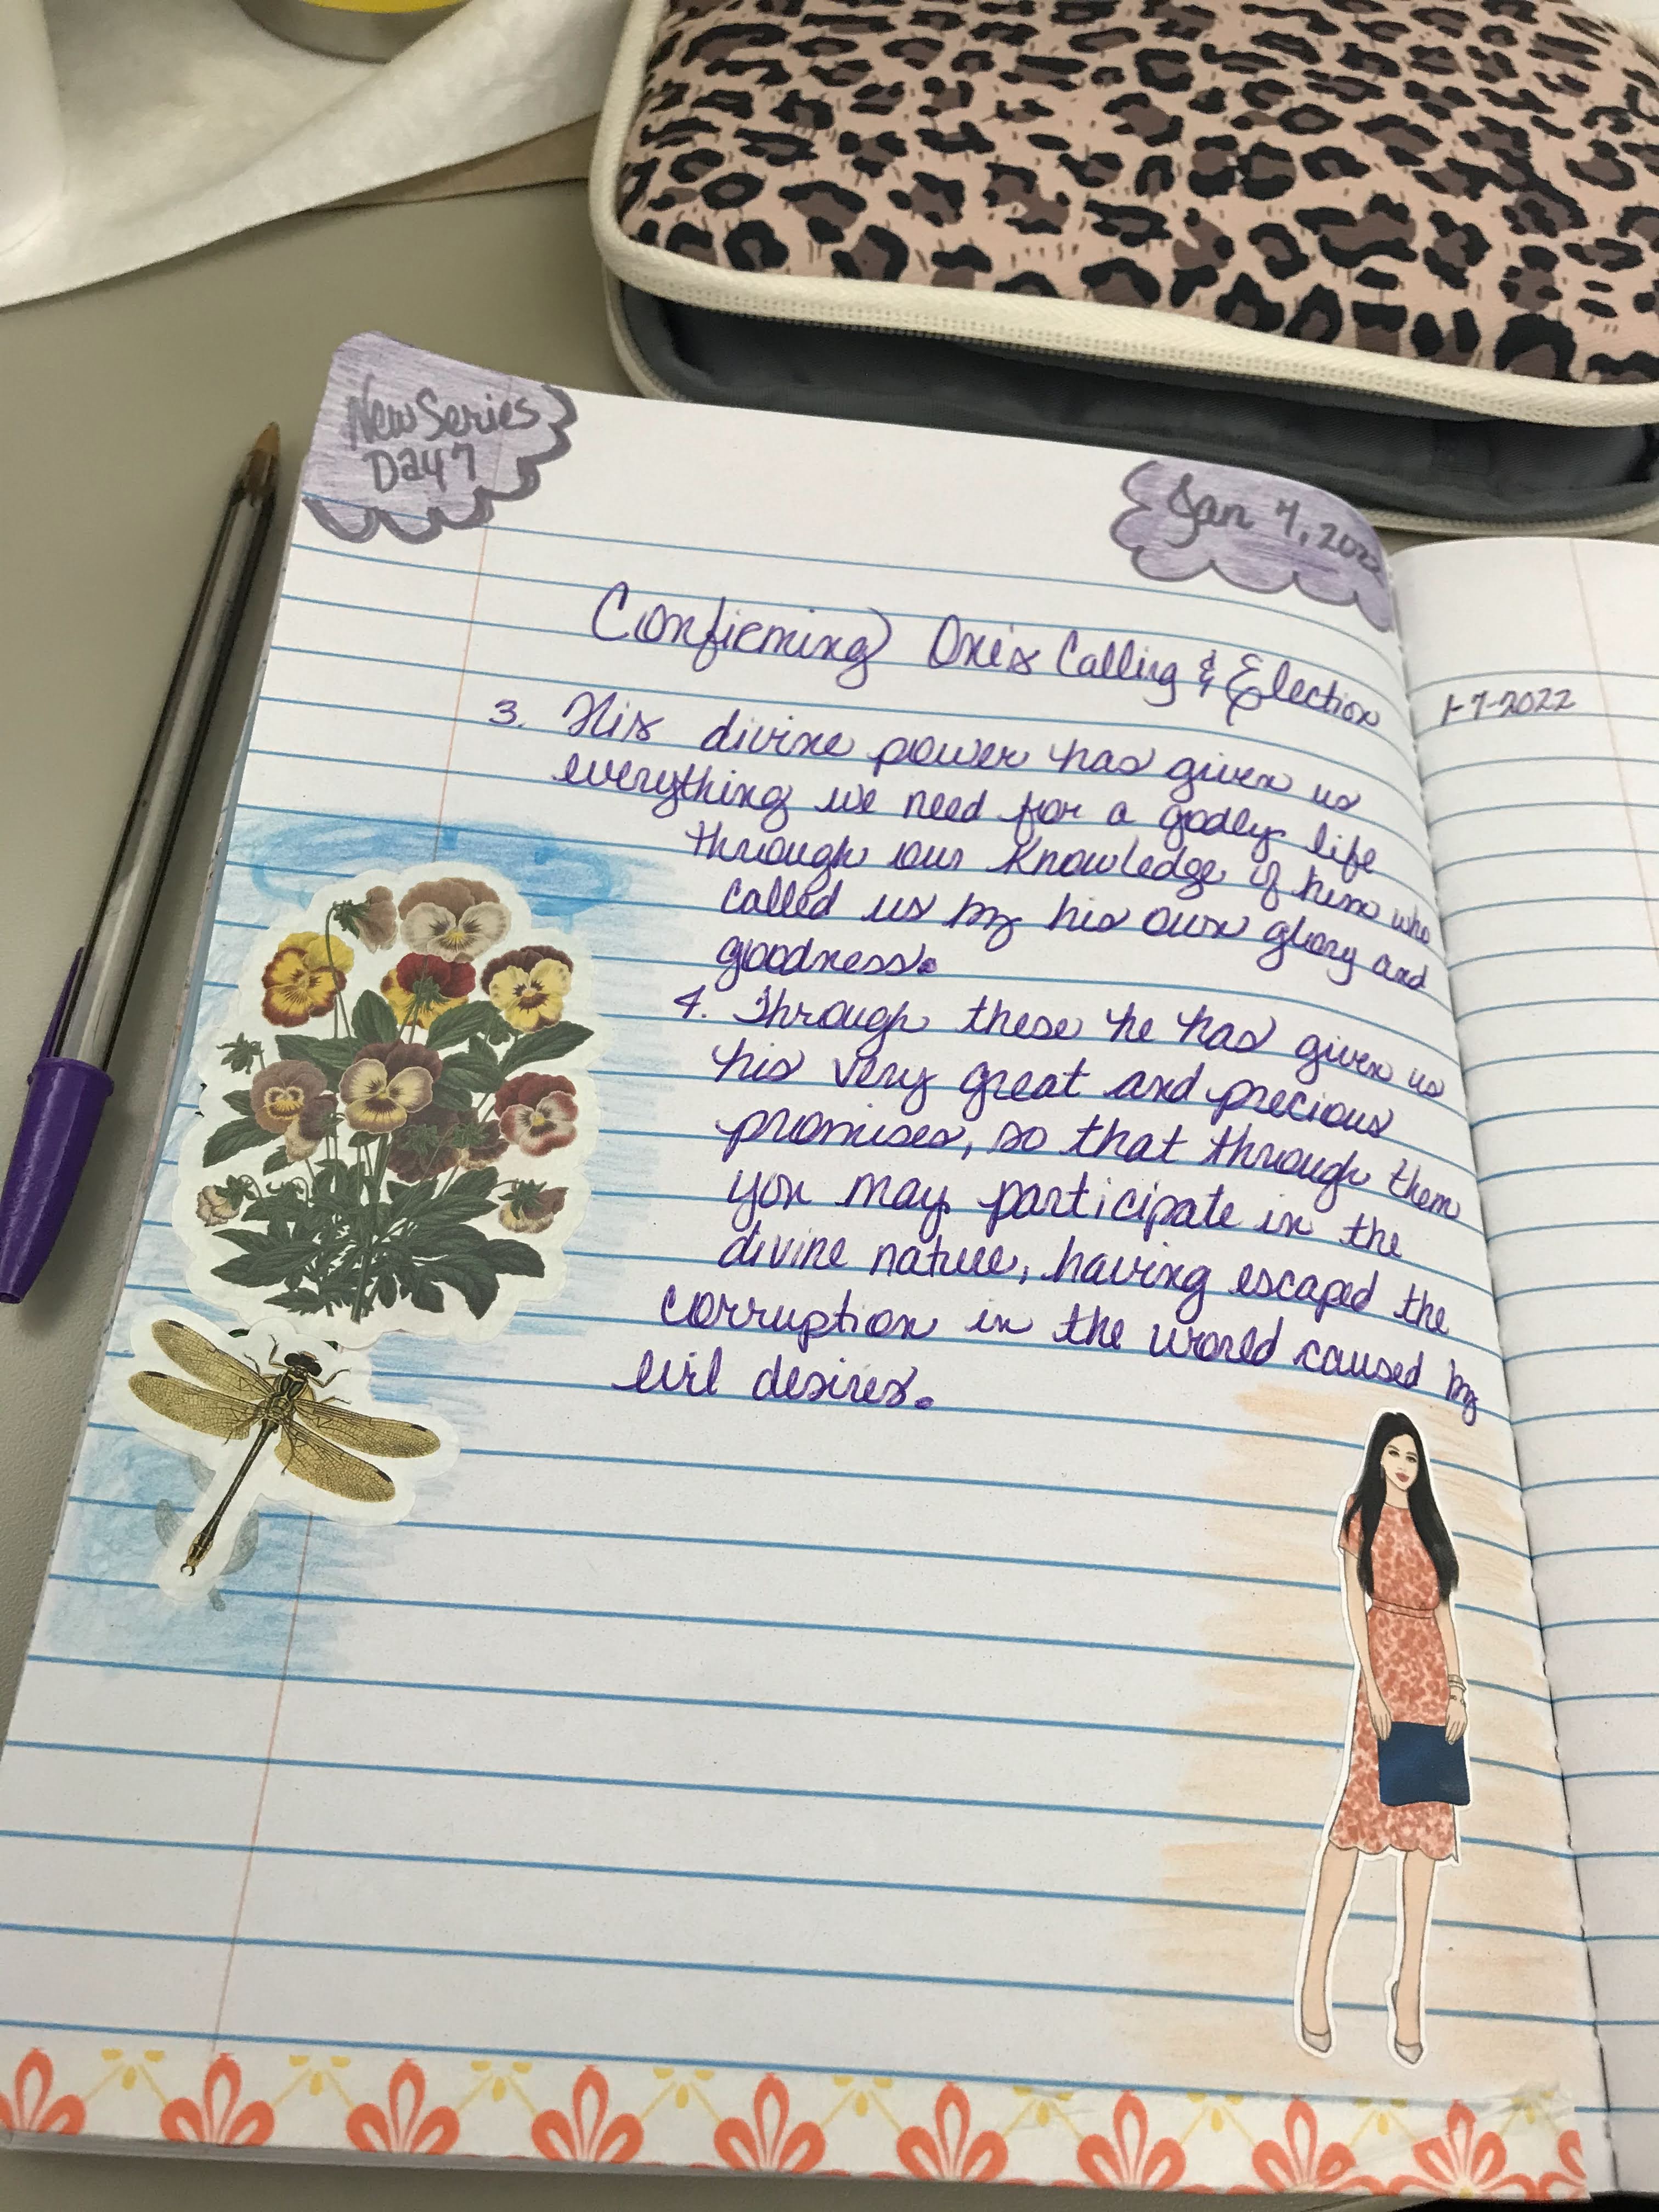 New Series
Day 7
Jan 7, 2022
Confirming One's Calling & Election
1-7-2022
3. His divine power has given us
everything we need for a godly life
through our knowledge of him who
called us by his own glory and
goodness.
4. Through these he has given us
his very great and precious
promises, so that through them
you may participate in the
divine nature, having escaped the
corruption in the world caused by
evil desires.